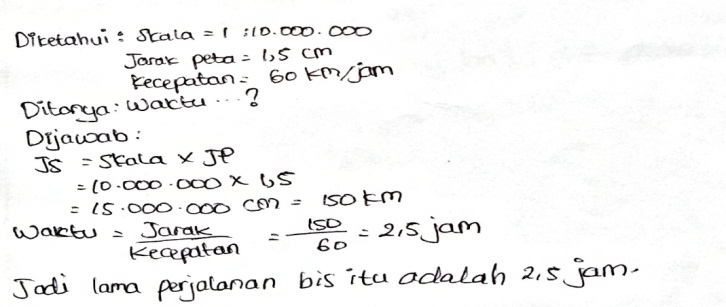 Diketahui : Skala = 1 : 10.000.000
Jarak peta = 1,5 cm
Kecepatan = 60 km/jam
Ditanya : Waktu ... ?
Dijawab :
JS = Skala x JP
= 10.000.000 x 1,5
= 15.000.000 cm = 150 km
Waktu = Jarak / Kecepatan = 150 / 60 = 2,5 jam
Jadi lama perjalanan bis itu adalah 2,5 jam.